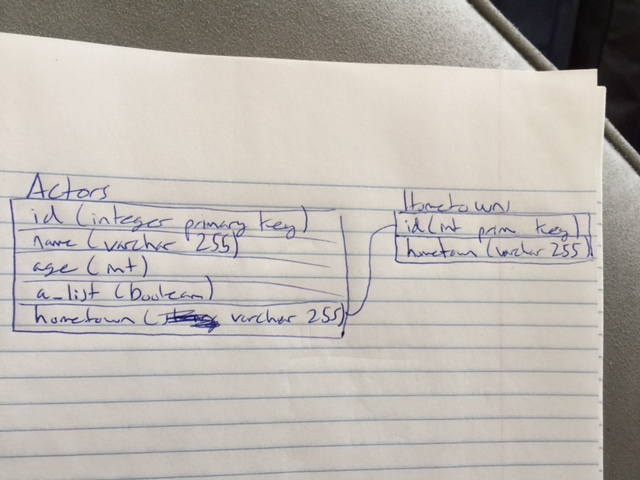 Actors
id (integer primary key)
name (varchar 255)
age (int)
a_list (boolean)
hometown ( varchar 255)
Hometown
id (int prim key)
hometown (varchar 255)